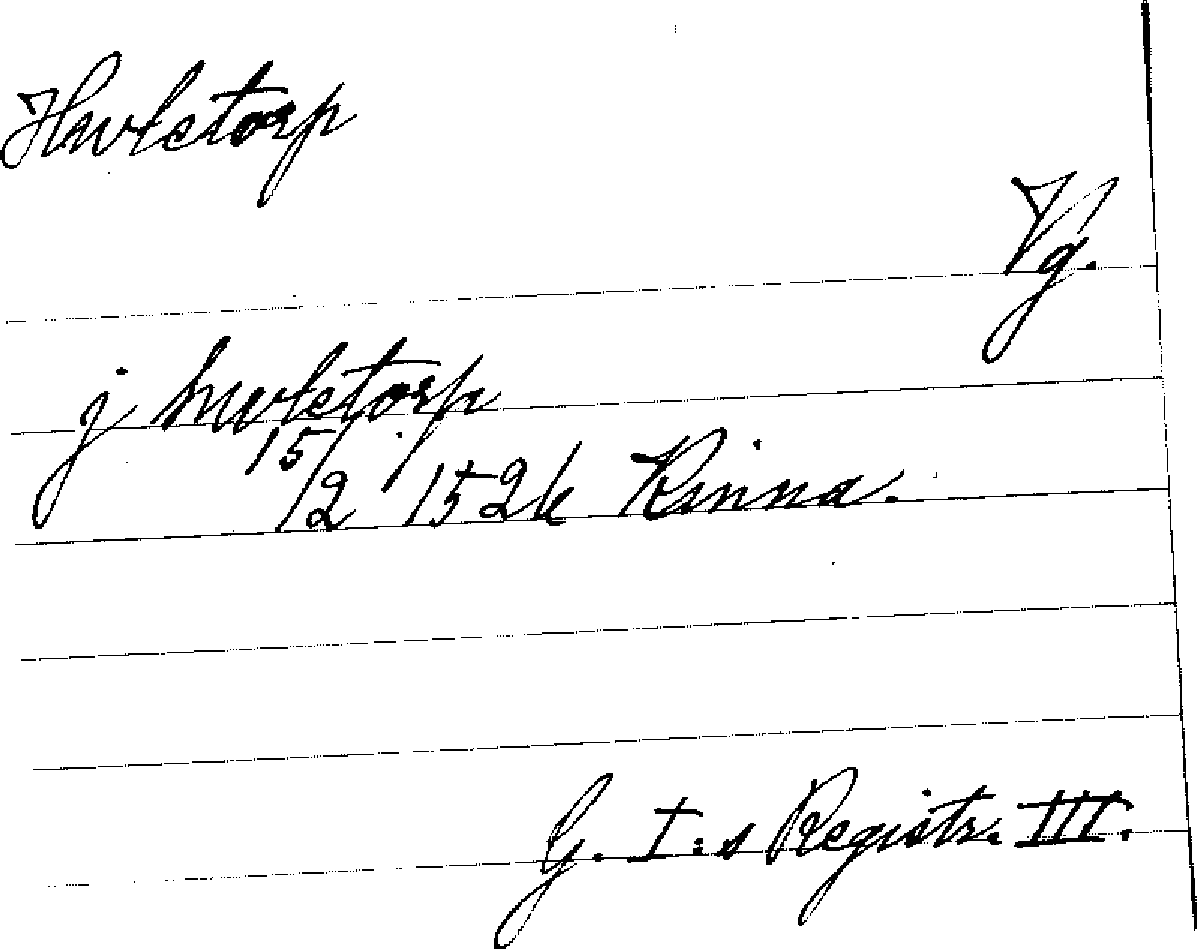 Hwletorp
Vg.
j hwletorp
15/2 1526 Kinna.
G. I:s Registr. III.